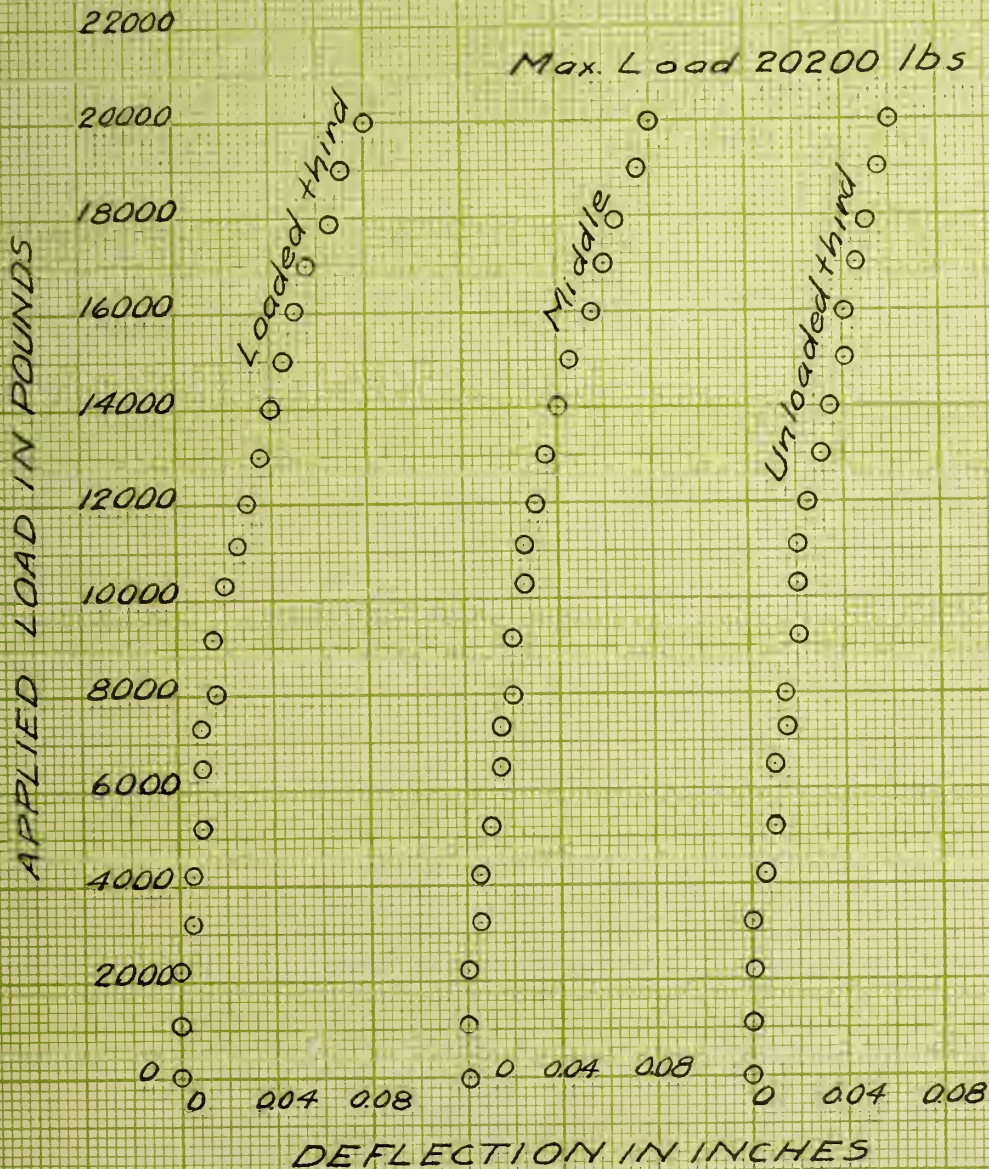 22000
Max. Load 20200 lbs
20000
18000
16000
14000
12000
10000
8000
6000
4000
2000
0
APPLIED LOAD IN POUNDS
Loaded third
Middle
Unloaded third
0 0.04 0.08
0 0.04 0.08
0 0.04 0.08
DEFLECTION IN INCHES